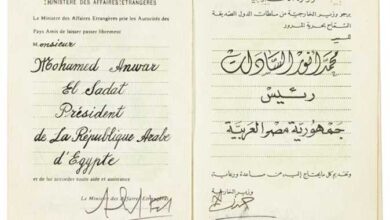 MINISTERE DES AFFAIRES ETRANGERES
Le Ministre des Affaires Etrangères prie les Autorités des
Pays Amis de laisser passer librement
Monsieur
Mohamed Anwar
El Sadat
Président
de La République Arabe
d'Egypte
et de lui accorder toute aide et assistance
Le Ministre des Affaires Etrangères
يرجو وزير الخارجية من سلطات الدول الصديقة
السماح بحرية المرور
محمد أنور السادات
رئيس
جمهورية مصر العربية
وتقديم كل ما يحتاج إليه من مساعدة ورعاية
وزير الخارجية